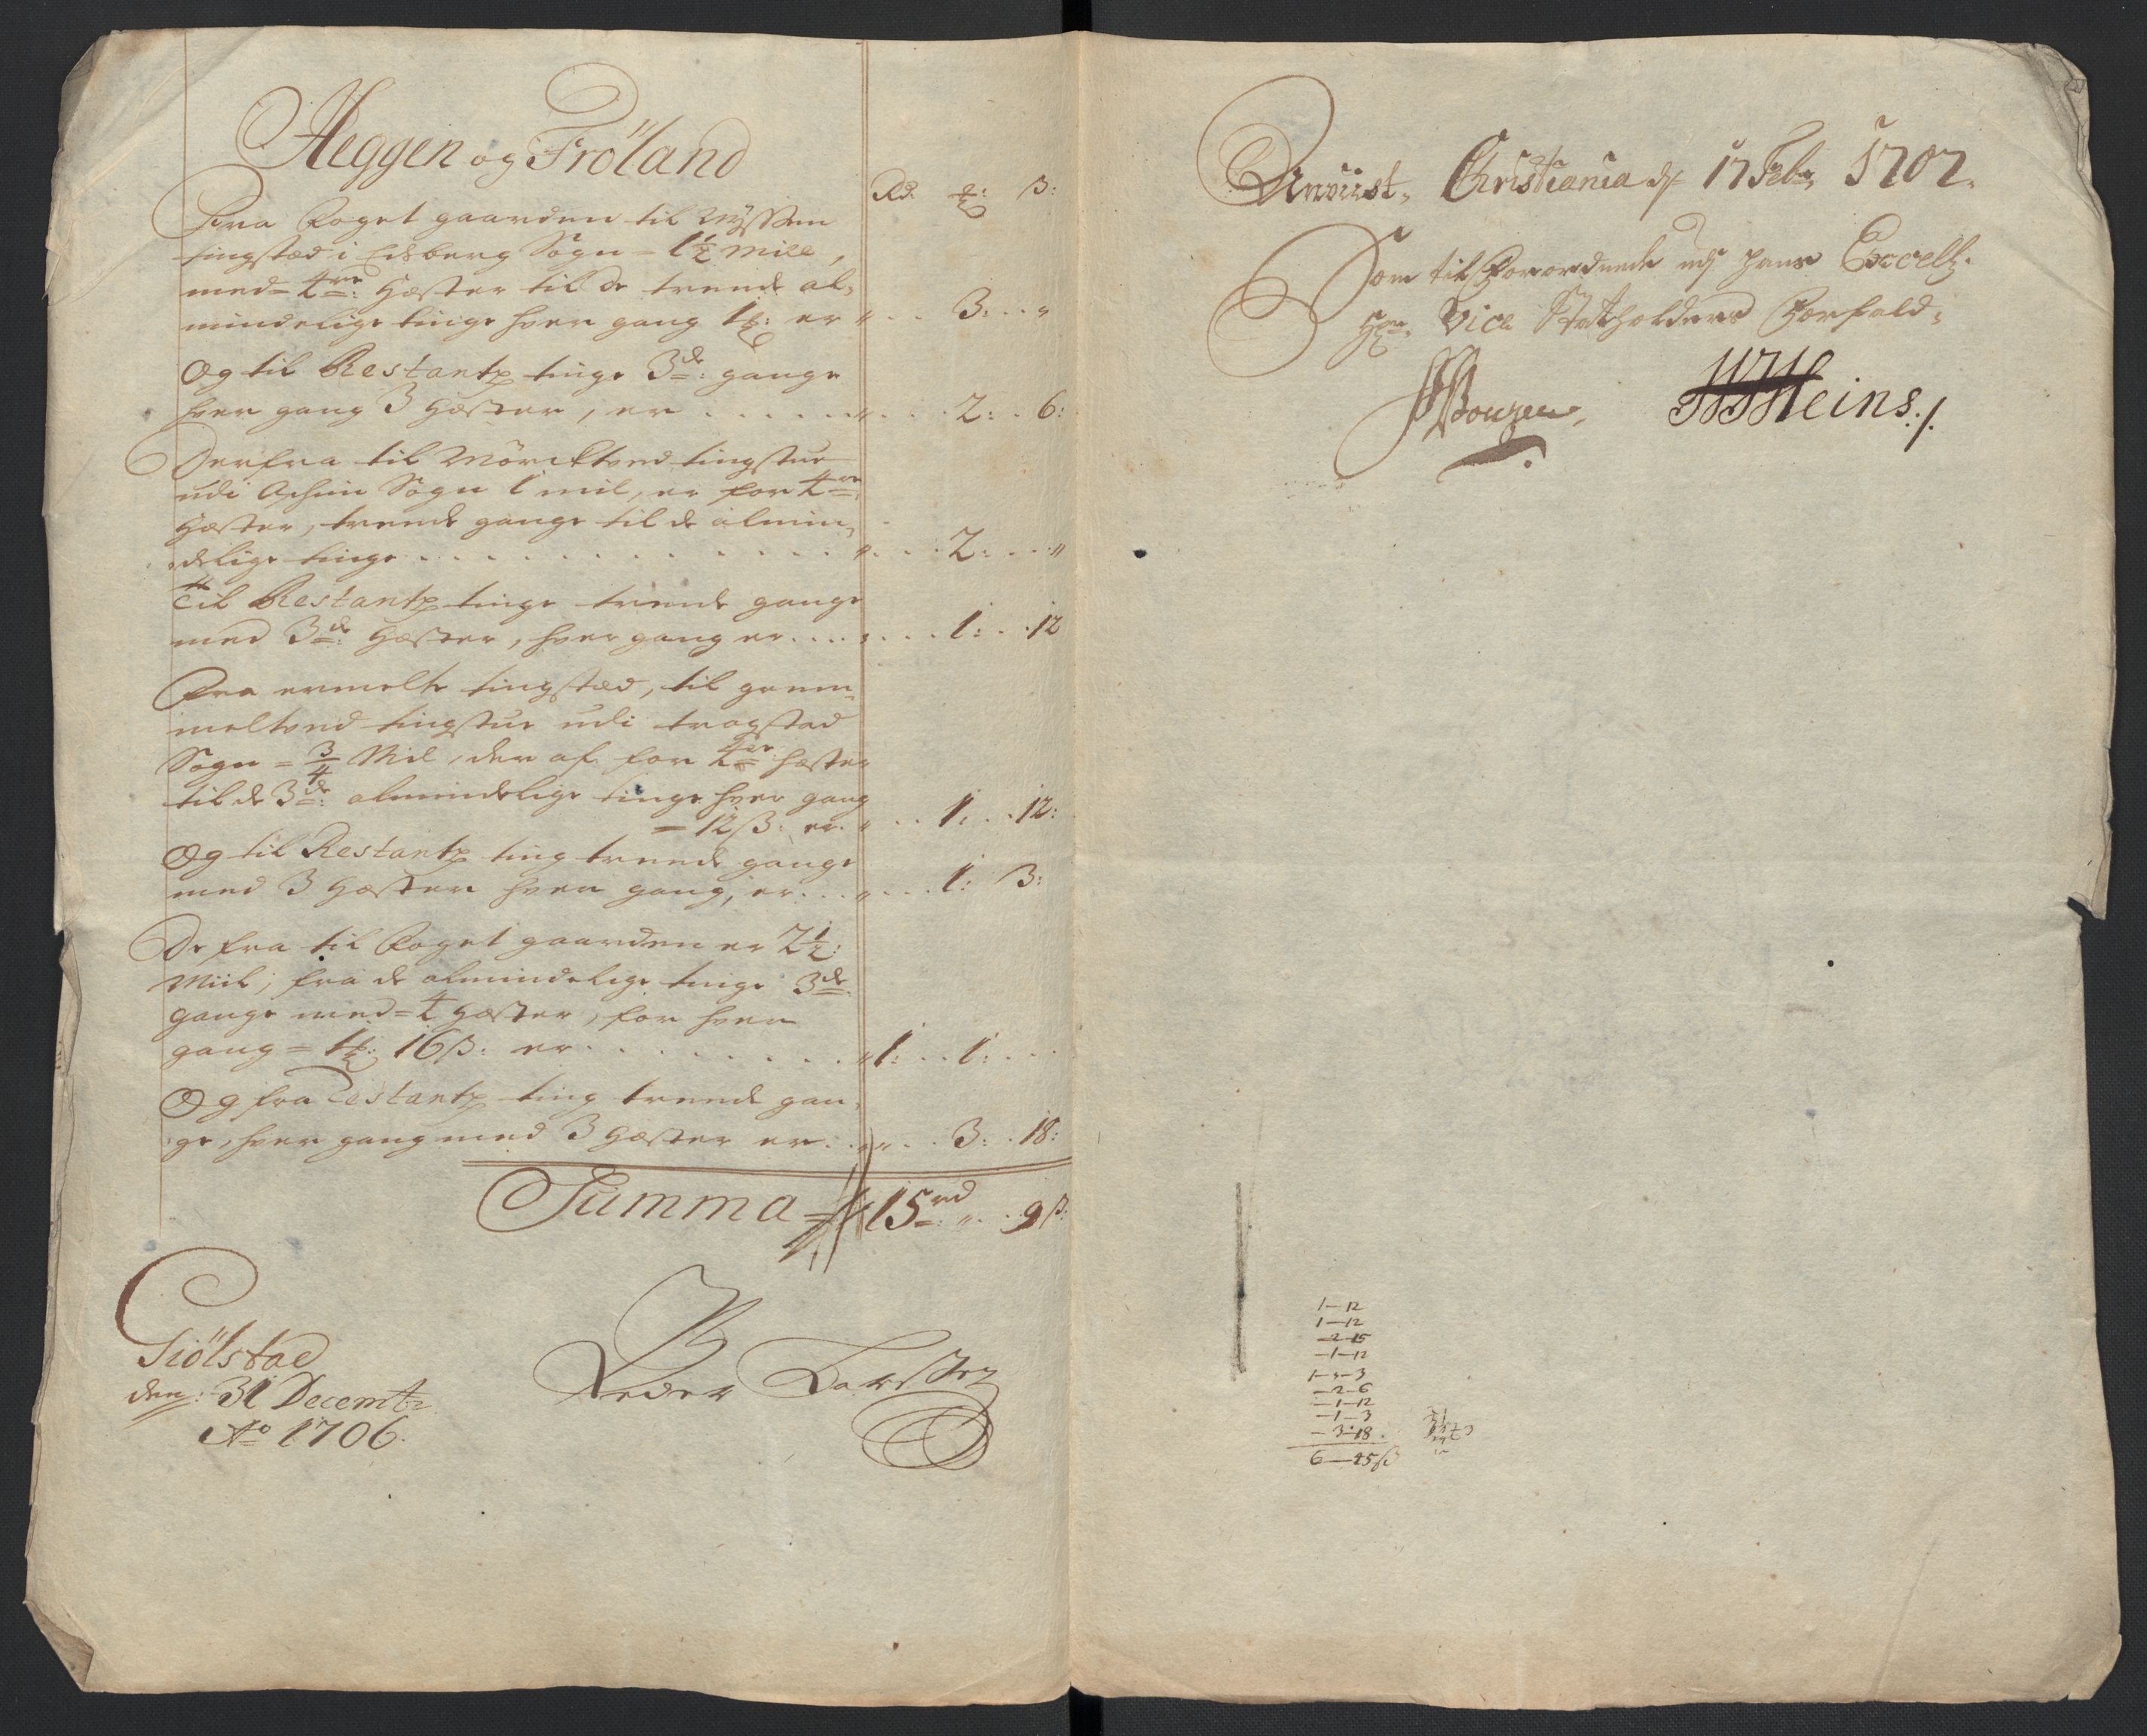 Heggen og Fröland
Rd. ß:
Fra Foget gaarden til Myssen
tingstæd i Eidsberg Sogn = 1½ Mill,
med = 4re: Hæster til de trende al-
mindelige tinge hver gang 1 er " . . . 3: . . "
Og til Restantz tinge 3de: gange
hver gang 3 Hæster, er . . . . . . " . . . 2: . . 6:
Derfra til Mörchtved tingstue
udi Aschim Sogn 1 mil, er for 4re
Hæster, trende gange til de almin-
delige tinge . . . . . . . . . " . . . 2: . . . "
Til Restantz tinge trende gange
med 3de: Hæster, hver gang er . . . . . . . 1: . . 12
Fra ermelte tingstæd, til gam-
meltved tingstue udi trogstad
Sogn = 3/4 Mil, der af for 4re hæster
til de 3de: almindelige tinge hver gang
= 12 ß: er . " . . 1: . . 12:
Og til Restantz ting trende gange
med 3 Hæster hver gang, er . . . " . . . 1: 3:
De fra til Foget gaarden er 2½:
Miil, fra de almindelige tinge 3de
gange med = 4 Hæster, for hver
gang = 1 16 ß: er . . . . . . . . . " 1: . . 1: . . .
Og fra Restantz ting trende gan-
ge, hver gang med 3 Hæster er . . . " . . 3: . 18:
Summa = 15 rd " . . 9 ß:
Giölstad
den: 31 Decembr
Ao 1706.
Peder Larssen
Anviist. Christiania d. 17 Febr. 1707.
Som til Forordnede udj hans Excell:
Hr. Vice Statholders Forfald.
WHeins ./.
1 — 12
1 — 12
— 2 — 15
— 1 — 12
1 — 3 — 3
— 2 — 6
— 1 — 12
— 1 — 3
— 3 — 18
6 — 45 ß